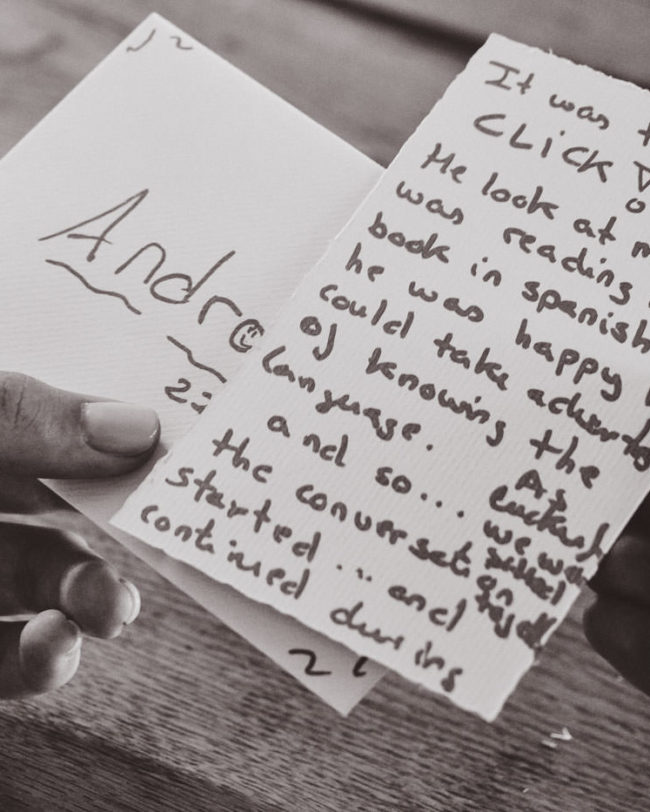 Andre
22
21
It was t
CLiCK
He look at m
was reading
book in spanish
he was happy
could take adverta
of knowing the
language.
and so...
the conversati
started ... and
continued during
As
luckily
we we